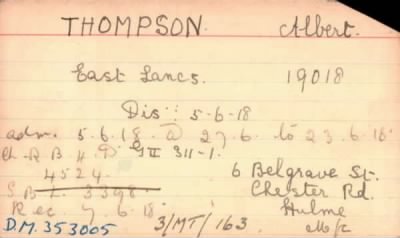 THOMPSON. Albert.
East Lancs. 19018
Dis:: 5-6-18
adm. 5.6.18. @ 27.6. to 23.6.18.
Ch. R B 4 D. G II 311-1.
4524 6 Belgrave St.
S B L. 3398. Chester Rd.
Rec 7.6.18. Hulme
D.M. 353005 3/MT/163. M/c